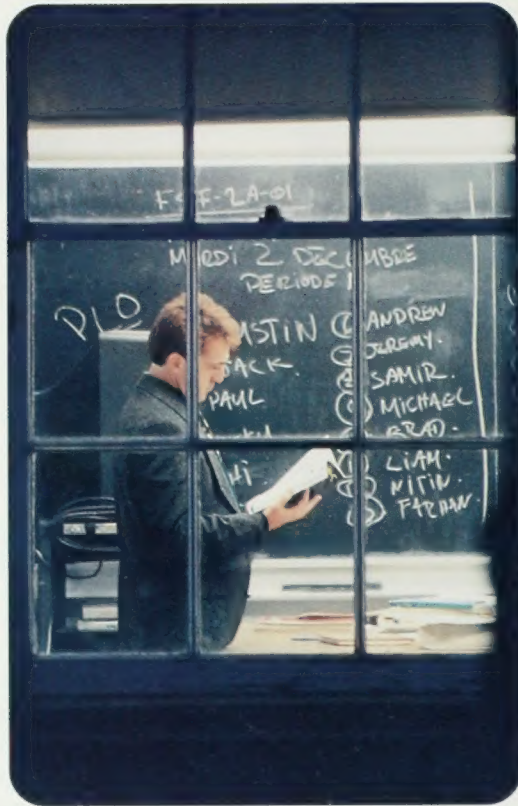 FSF-2A-01
MARDI 2 DÉCEMBRE
PERIODE 1
PLO
JACK.
PAUL
ANDREW
JEREMY.
SAMIR.
MICHAEL
BRAD.
LIAM.
NITIN.
FARHAN.